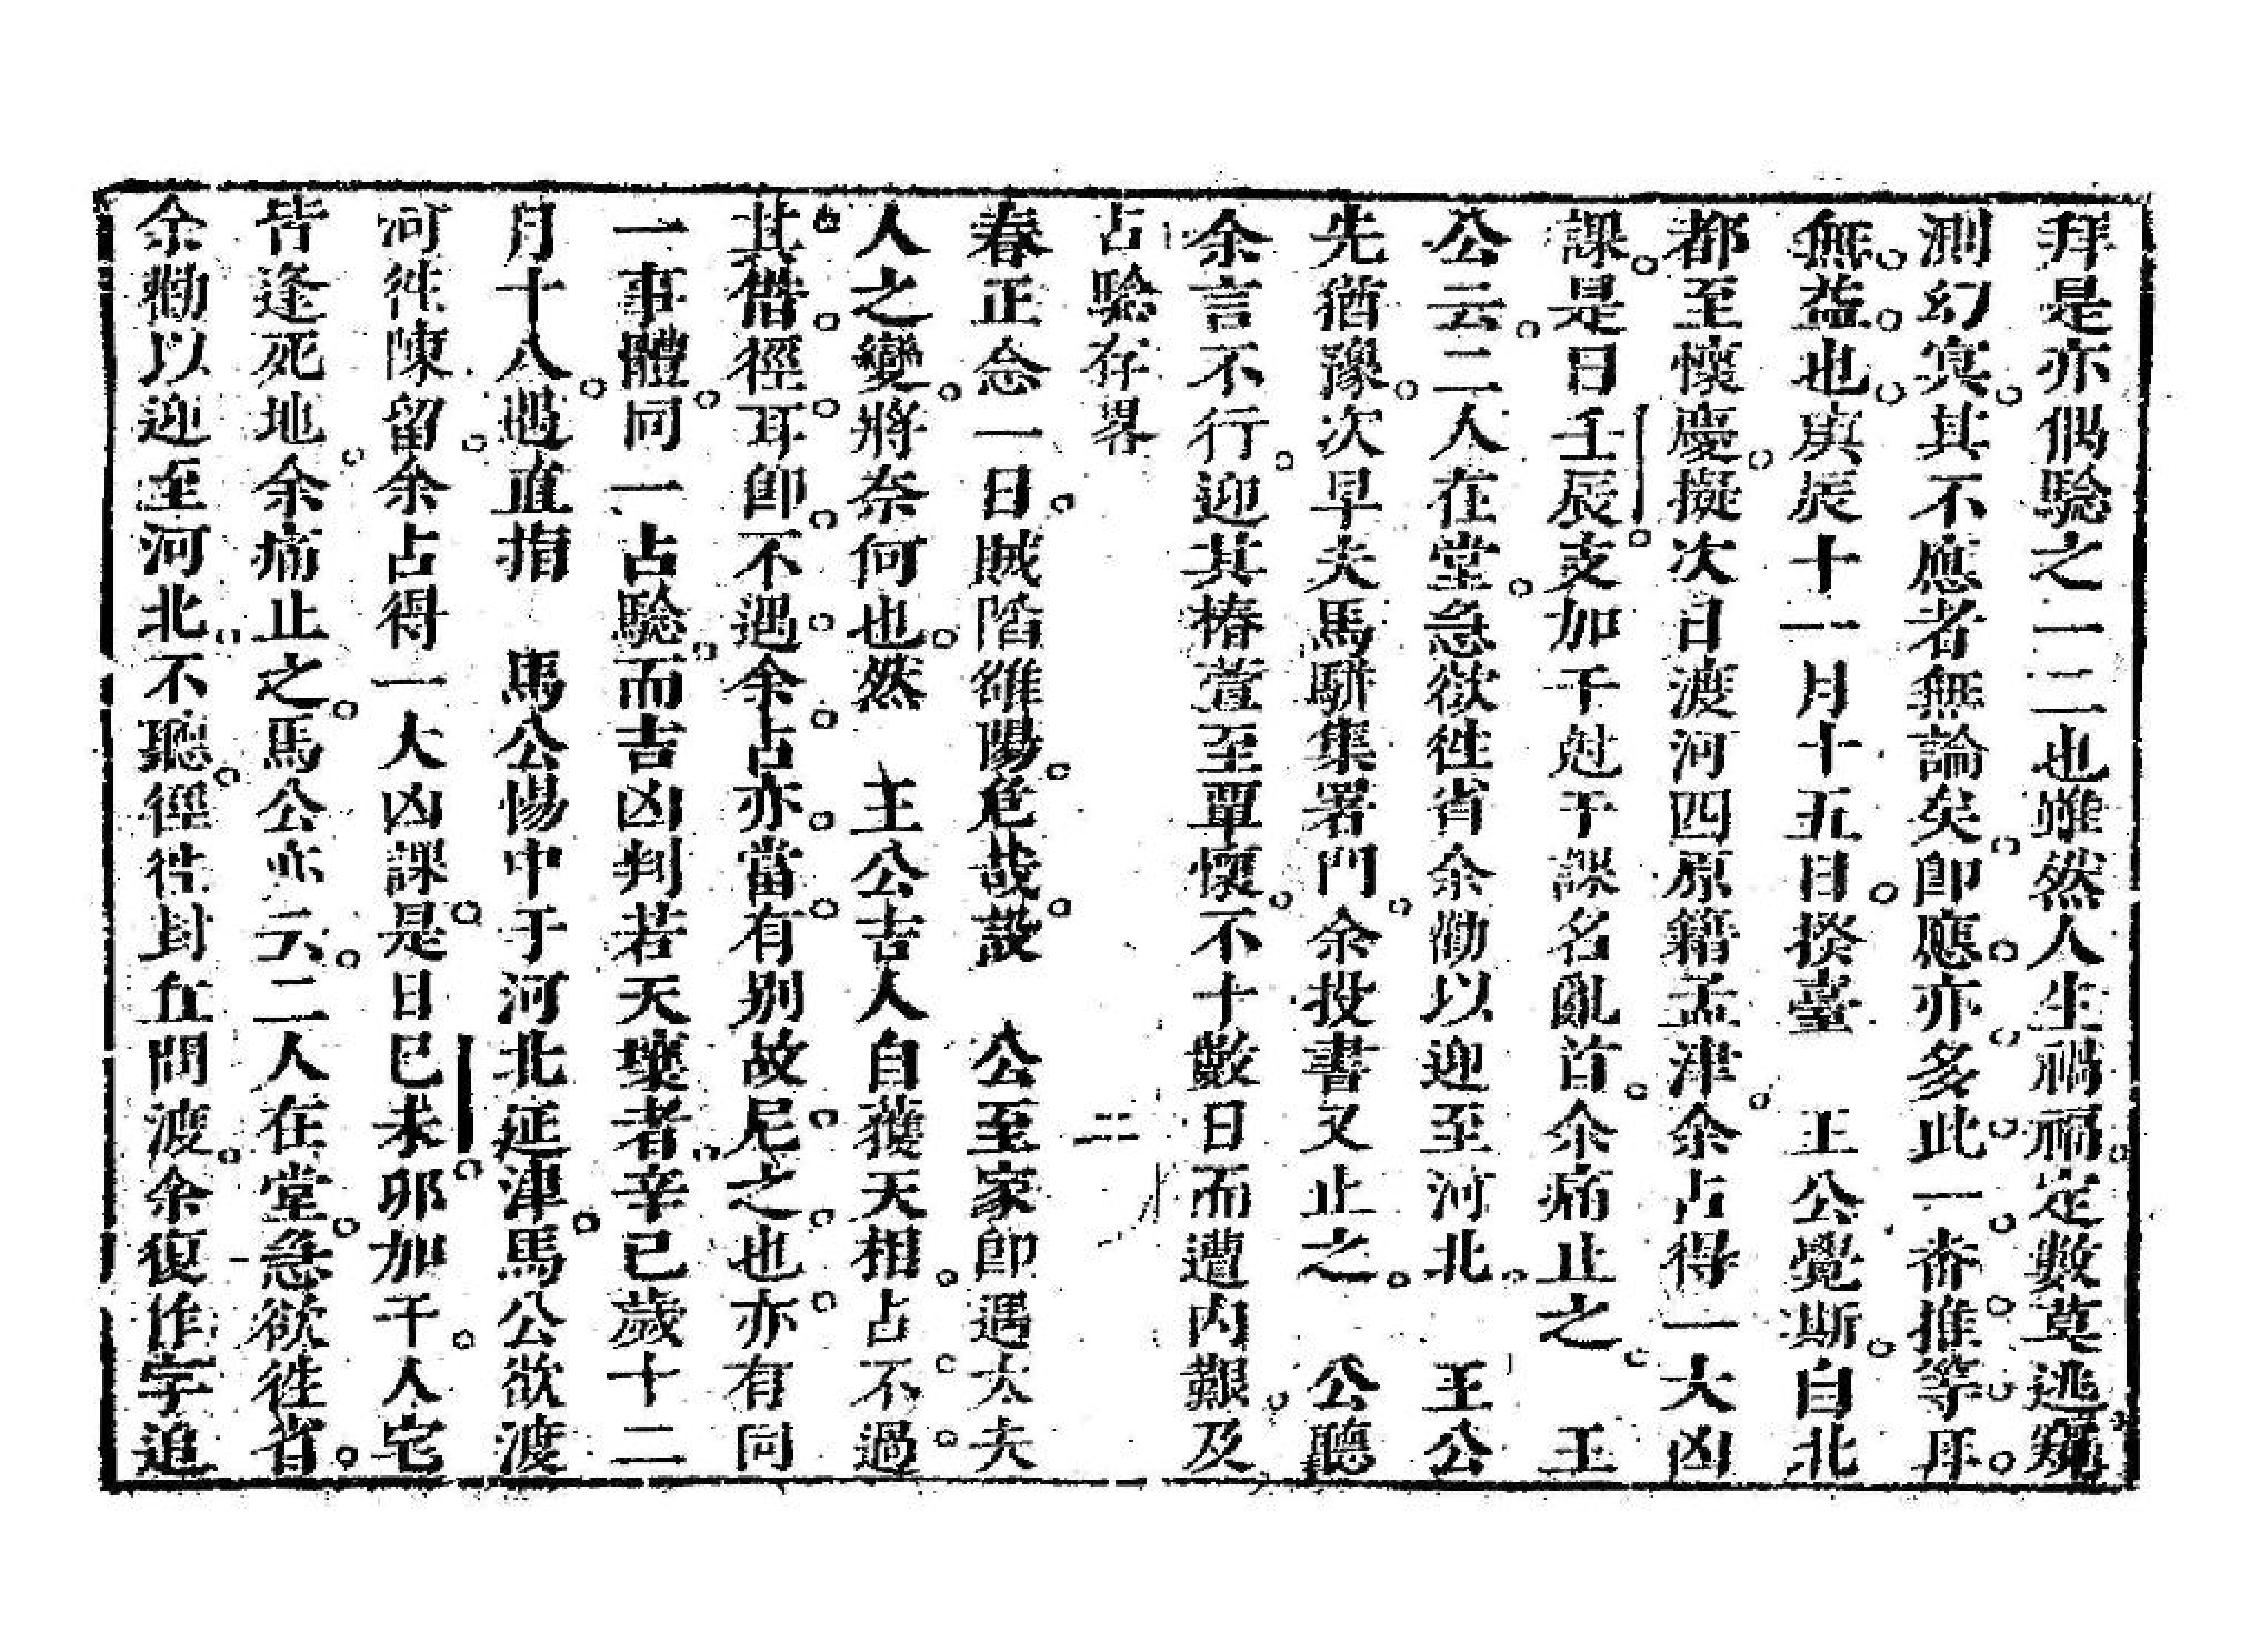 拜是亦偶驗之一二也雖然人生禍福定數莫逃窺
測幻㝠其不應者無論矣卽應亦多此一畨推筭耳
無益也庚辰十一月十五日揆臺　王公覺斯自北
都至懷慶擬次日渡河四原籍孟津余占得一大凶
課是日壬辰支加干尅干課名亂首余痛止之　王
公云二人在堂急欲徃省余勸以迎至河北　王公
先猶豫次早夫馬駢集署門余投書又止之　公聽
余言不行迎其椿萱至覃懷不十數日而遭内艱及
占驗存畧　二
春正念一日賊陷雒陽危哉設　公至家卽遇太夫
人之變將奈何也然　王公吉人自獲天相占不過
其借徑耳卽不遇余占亦當有別故尼之也亦有同
一事體同一占驗而吉凶判若天壤者辛巳歲十二
月十八遇直指　馬公惕中于河北延津馬公欲渡
河徃陳留余占得一大凶課是日巳未卯加干人宅
皆逢死地余痛止之馬公亦云二人在堂急欲徃省
余勸以迎至河北不聽徑徃封丘間渡余復作字追